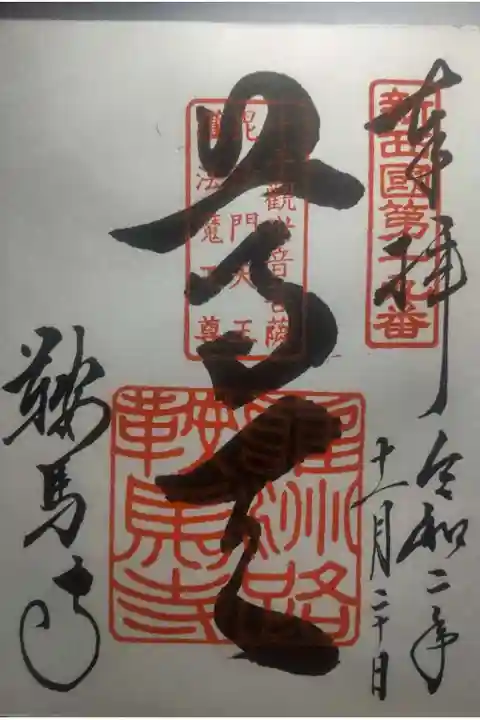 新西國第十九番
奉拝
令和二年
十一月二十日
千手觀世音菩薩
毘沙門天王
護法魔王尊
尊天
雍州路
鞍馬寺
鞍馬寺